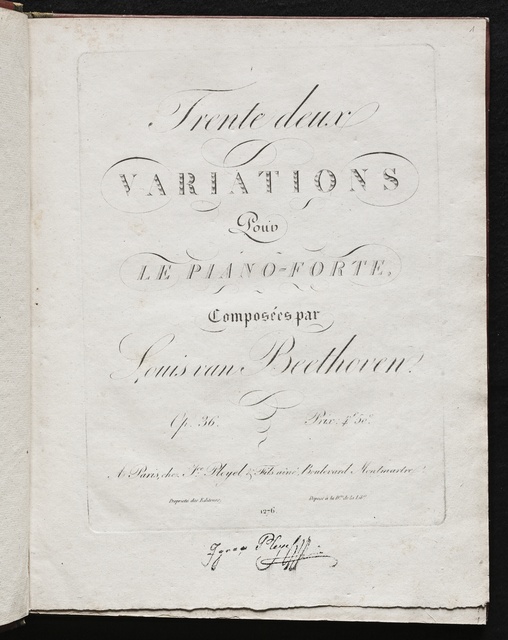 Trente deux
VARIATIONS
Pour
LE PIANO=FORTE,
Composées par
Louis van Beethoven.
Op. 36. Prix. 4f 50c
A Paris, chez Ice Pleyel & Fils ainé, Boulevard Montmartre.
Propriété des Editeurs. Déposé à la
1276.
Ignace Pleyel